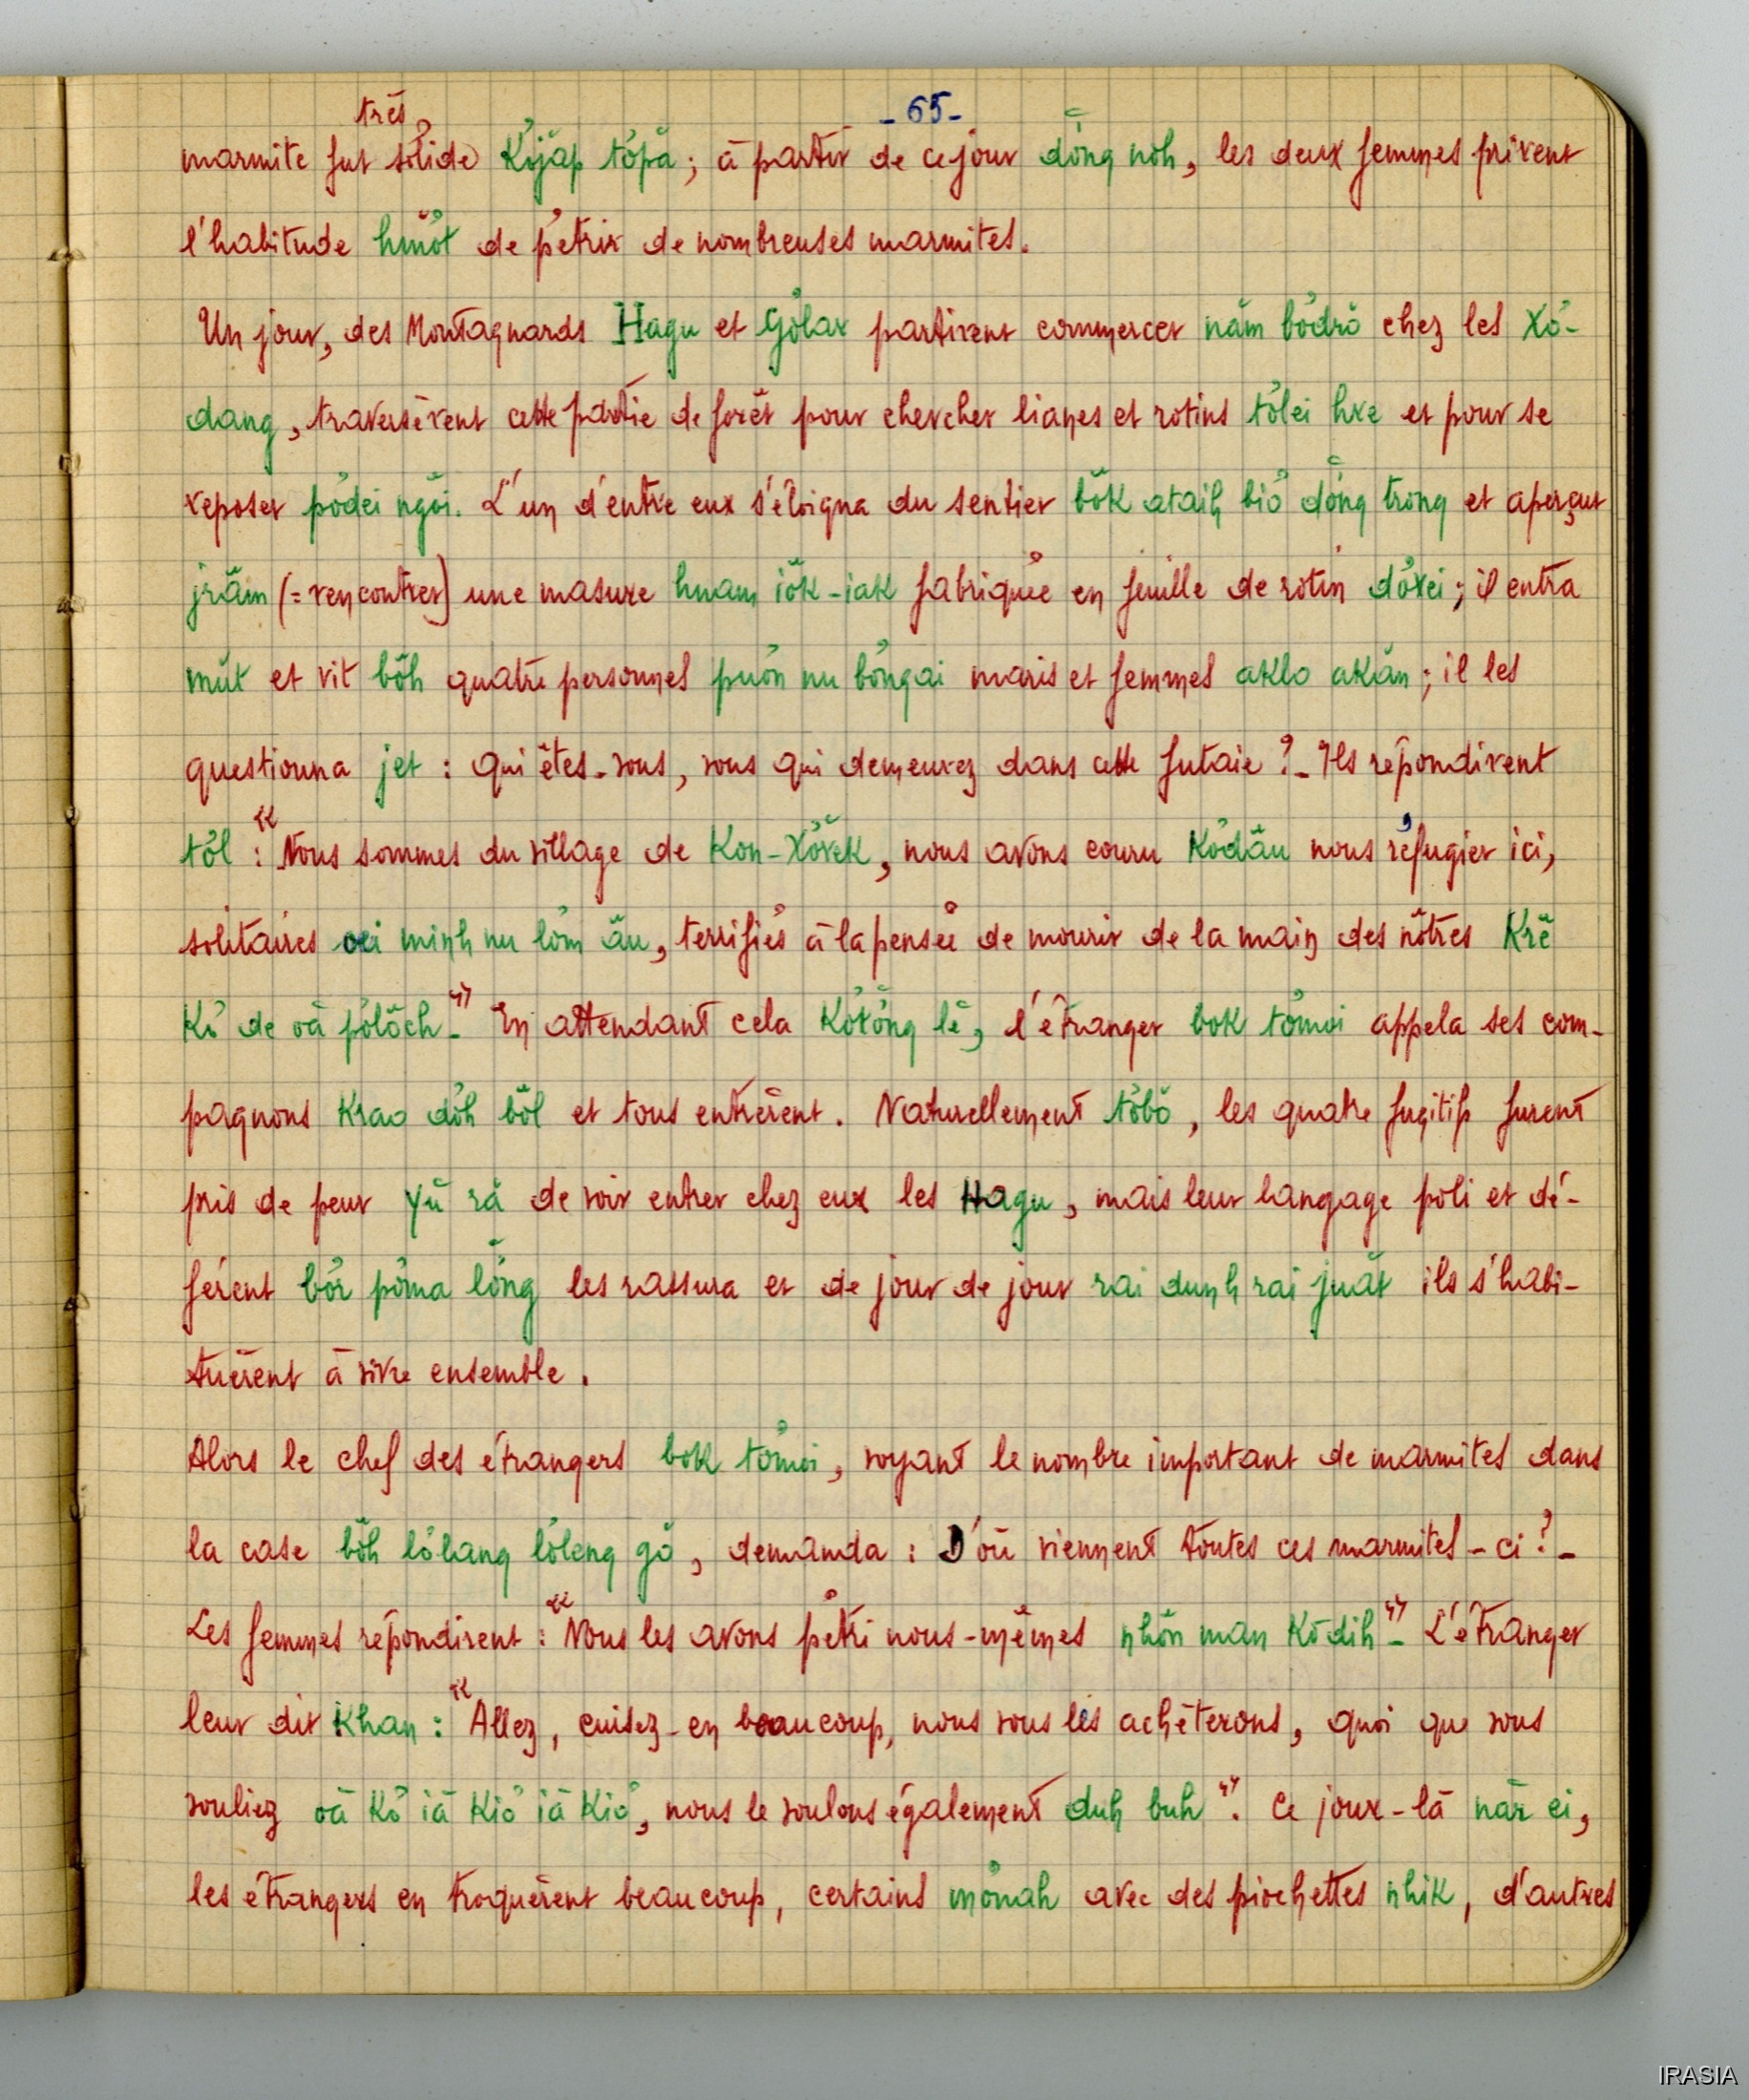 - 65 -
très
marmite fut solide kơjăp tơpă ; à partir de ce jour dơ̆ng noh, les deux femmes prirent
l'habitude hmơ̆t de pétrir de nombreuses marmites.
Un jour, des Montagnards Hagu et Gơlar partirent commercer năm bơdrŏ chez les Xơ-
dang, traversèrent cette partie de forêt pour chercher lianes et rotins tơlei hre et pour se
reposer pơdei ngơi. L'un d'entre eux s'éloigna du sentier bŏk ataih biơ̆ dơ̆ng trong et aperçut
jrăm (= rencontrer) une masure hnam iŏk-iak fabriquée en feuille de rotin dơrei ; il entra
mŭt et vit bơ̆h quatre personnes puơ̆n nu bơngai maris et femmes aklo akăn ; il les
questionna jet : Qui êtes-vous, vous qui demeurez dans cette futaie ? - Ils répondirent
tơ̆l : "Nous sommes du village de Kon-Xơrĕk, nous avons couru kơdău nous réfugier ici,
solitaires oei minh nu lơ̆m ău, terrifiés à la pensée de mourir de la main des nôtres krĕ
kơ de oă pơlŏch." - En attendant cela kơtơ̆ng lĕ, l'étranger bok tơmoi appela ses com-
pagnons krao dơ̆h bơ̆l et tous entrèrent. Naturellement tơbŏ, les quatre fugitifs furent
pris de peur yŭ ră de voir entrer chez eux les Hagu, mais leur langage poli et dé-
férent bơ̆r pơma lơ̆ng les rassura et de jour de jour rai dunh rai juăt ils s'habi-
tuèrent à vivre ensemble.
Alors le chef des étrangers bok tơmoi, voyant le nombre important de marmites dans
la case bơ̆h lơlang lơleng gŏ, demanda : D'où viennent toutes ces marmites-ci ? -
Les femmes répondirent : "Nous les avons pétri nous-mêmes nhôn man kơdih" - L'étranger
leur dit khan : "Allez, cuisez-en beaucoup, nous vous les achèterons, quoi que vous
vouliez oă kơ iă kiơ iă kiơ, nous le voulons également duh buh". Ce jour-là năr ei,
les étrangers en troquèrent beaucoup, certains mơnah avec des piochettes nhik, d'autres
IRASIA